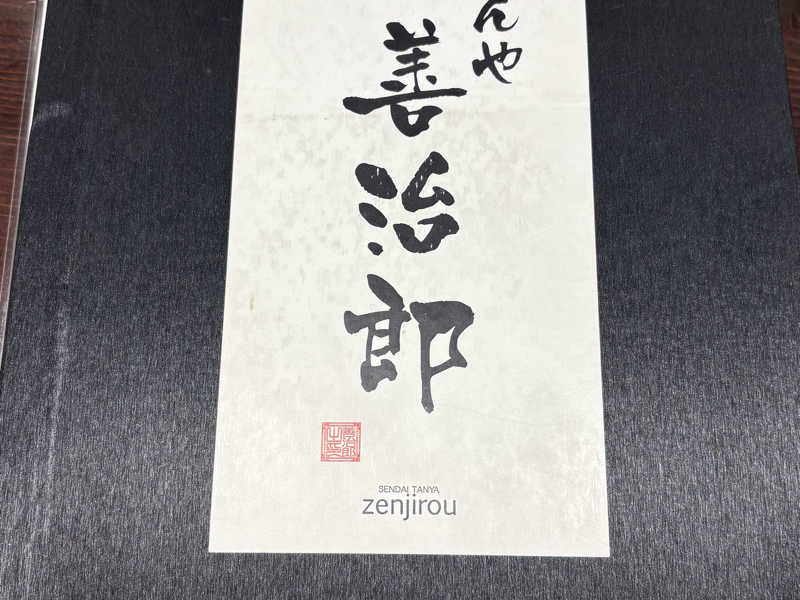 んや
善治郎
SENDAI TANYA
zenjirou